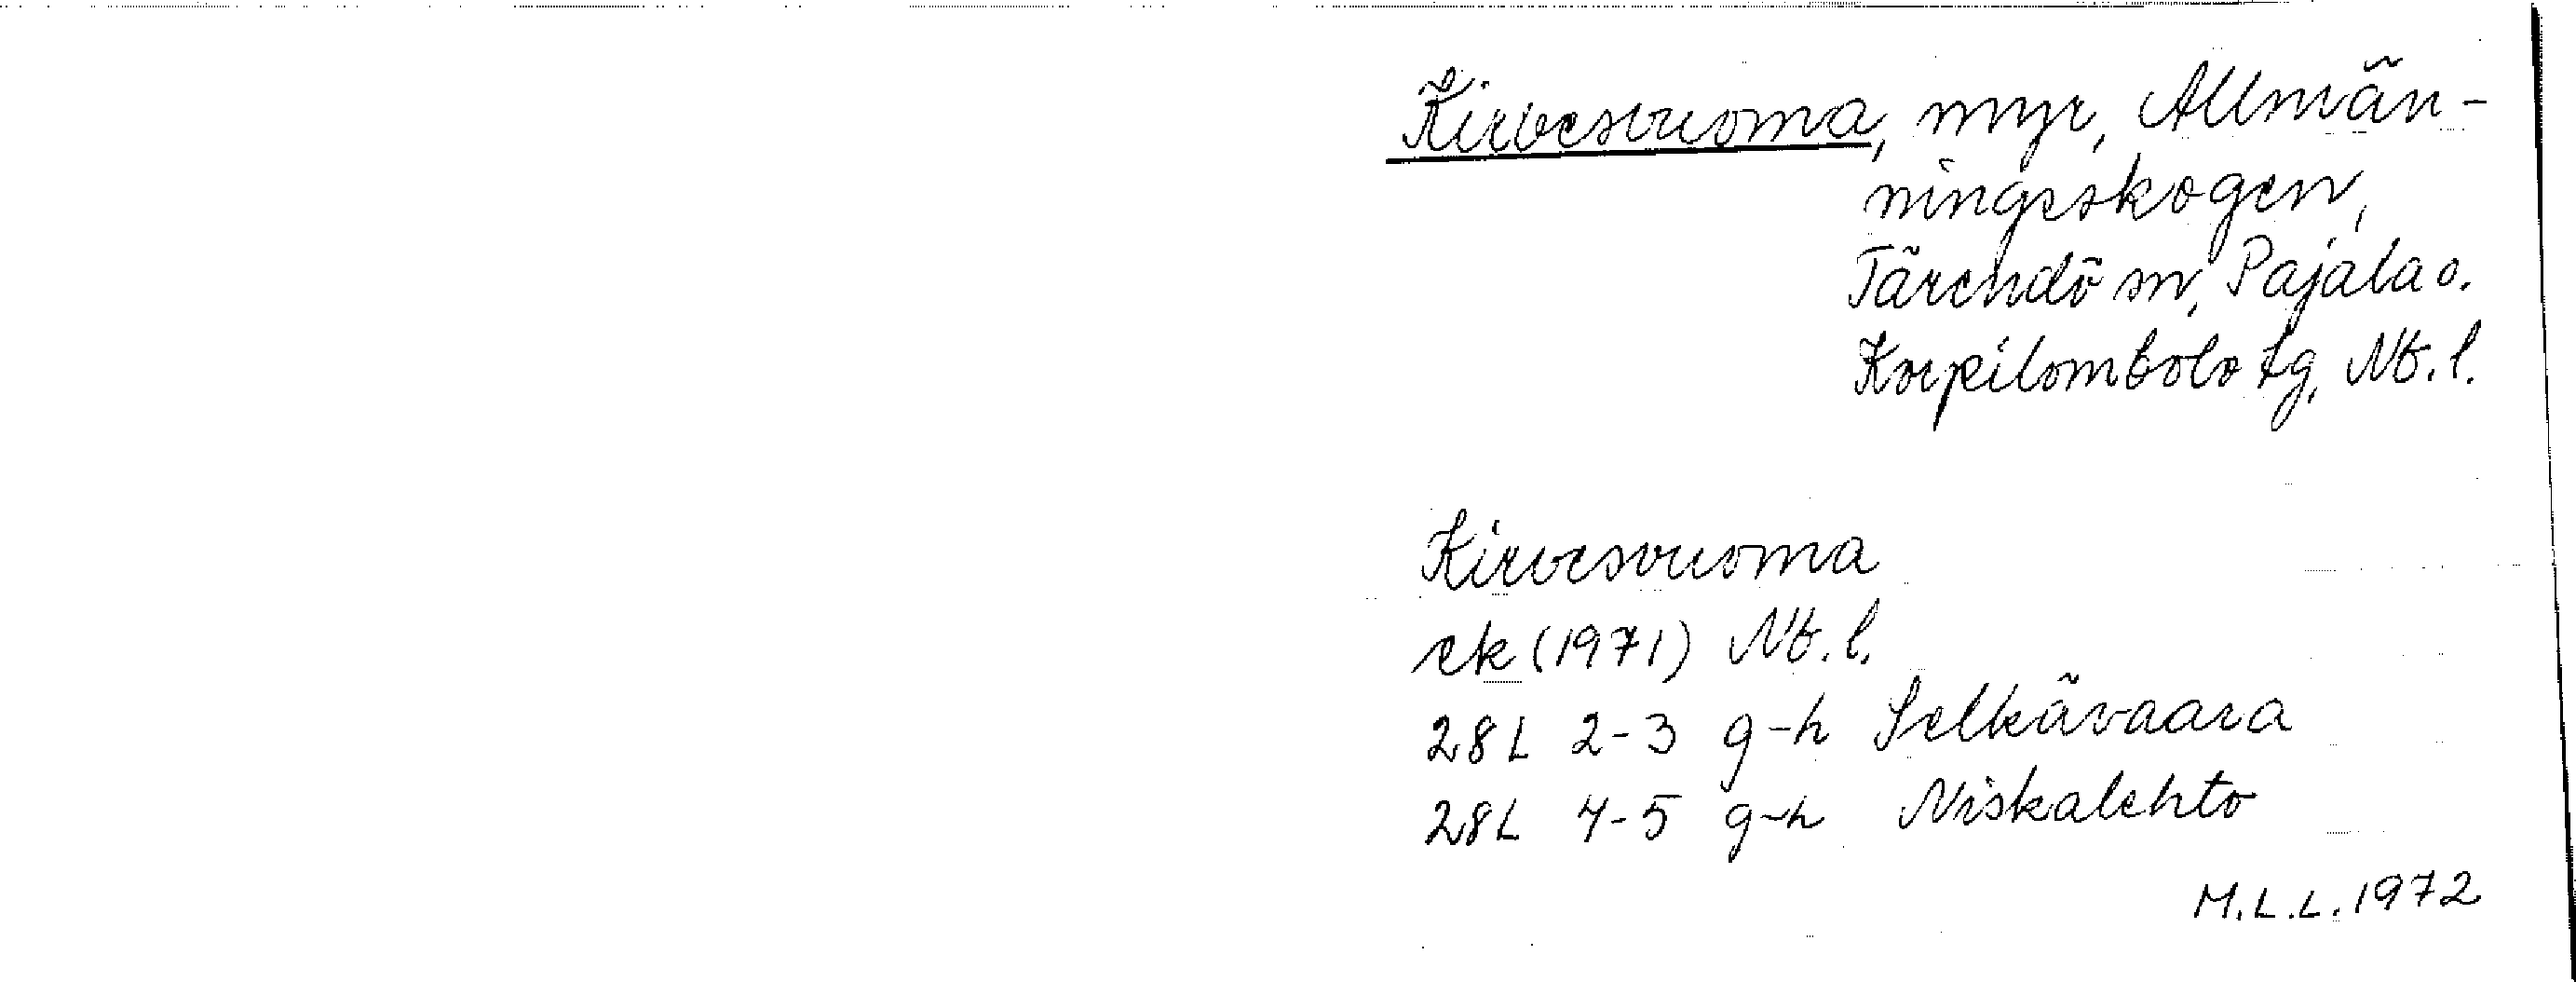 Kirvesvuoma, myr, Allmän-
ningsskogen,
Tärendö sn, Pajala o.
Korpilombolo tg, Nb. l.
Kirvesvuoma
ek (1971) Nb. l.
28L 2-3 g-h Selkävaara
28L 4-5 g-h Niskalehto
M.L.L. 1972